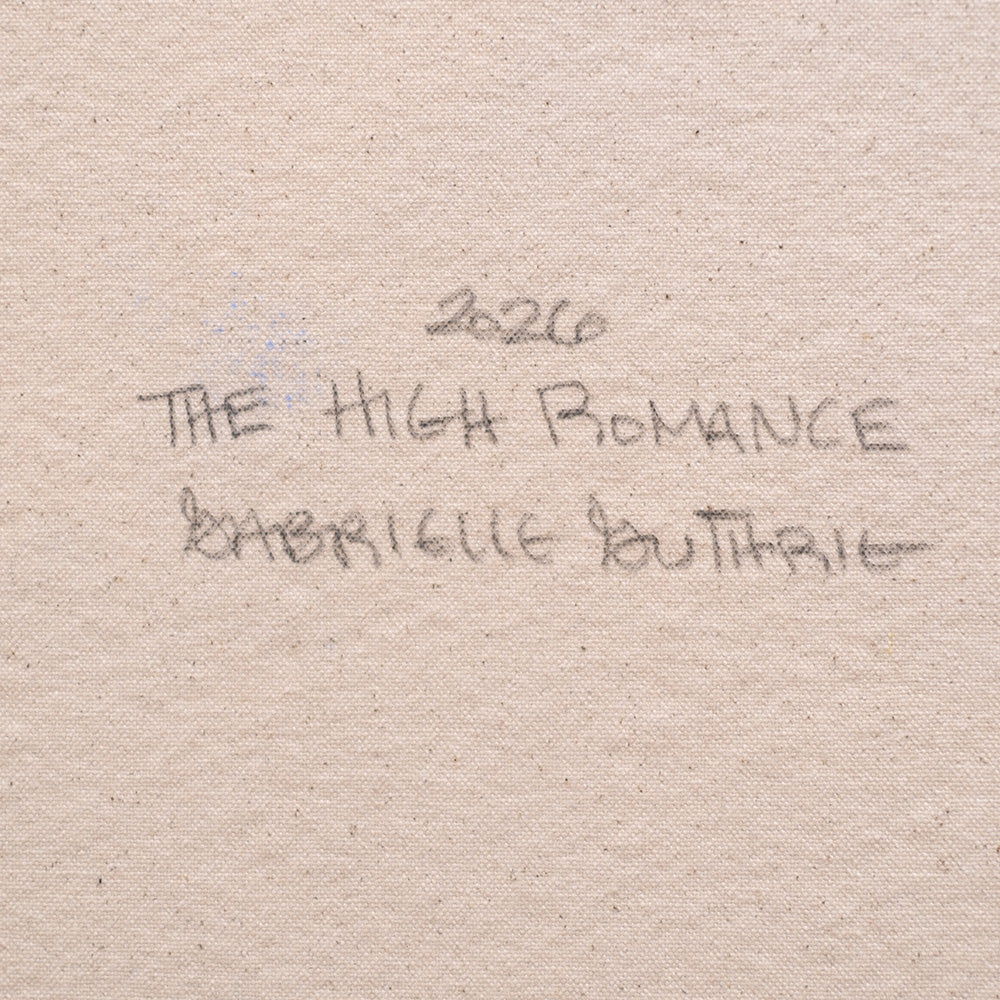 2026
THE HIGH ROMANCE
GABRIELLE GUTHRIE